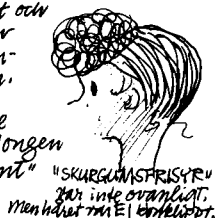 t och
r
n.
e
longen
nt"
"SKURGUMSFRISYR"
var inte ovanligt.
Men håret var EJ